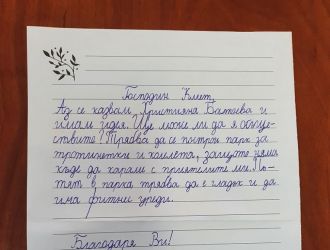 Господин Кмет,
Аз се казвам Християна Батоева и
имам идея. Ще може ли да я осъще-
ствите? Трябва да се построи парк за
тротинетки и колела, защото няма
къде да караме с приятелите ми. Пъ-
тят в парка трябва да е гладък и да
има фитнес уреди.
Благодаря Ви!